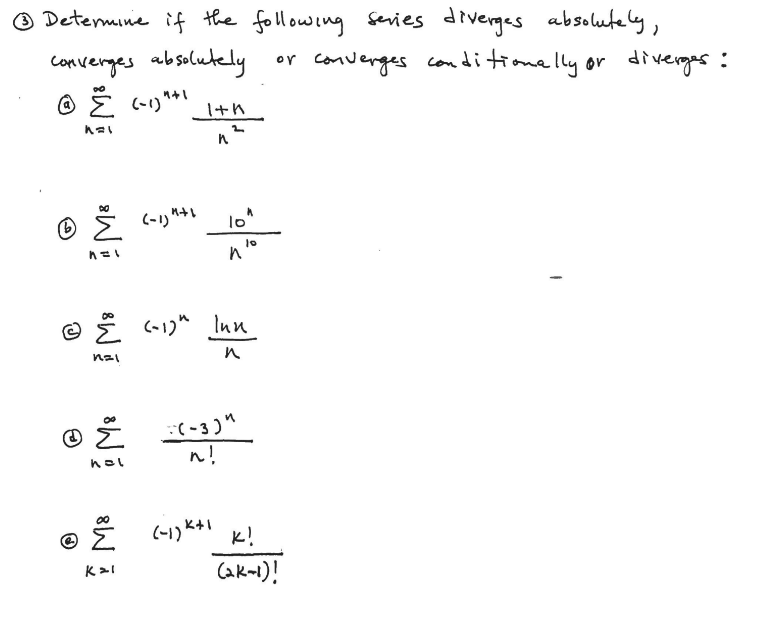 ③ Determine if the following series diverges absolutely,
converges absolutely or converges conditionally or diverges :
ⓐ ∞ Σ n=1 (-1)^{n+1} (1+n)/n^2
ⓑ ∞ Σ n=1 (-1)^{n+1} 10^n/n^{10}
ⓒ ∞ Σ n=1 (-1)^n ln n/n
ⓓ ∞ Σ n=1 (-3)^n/n!
ⓔ ∞ Σ k=1 (-1)^{k+1} k!/(2k-1)!